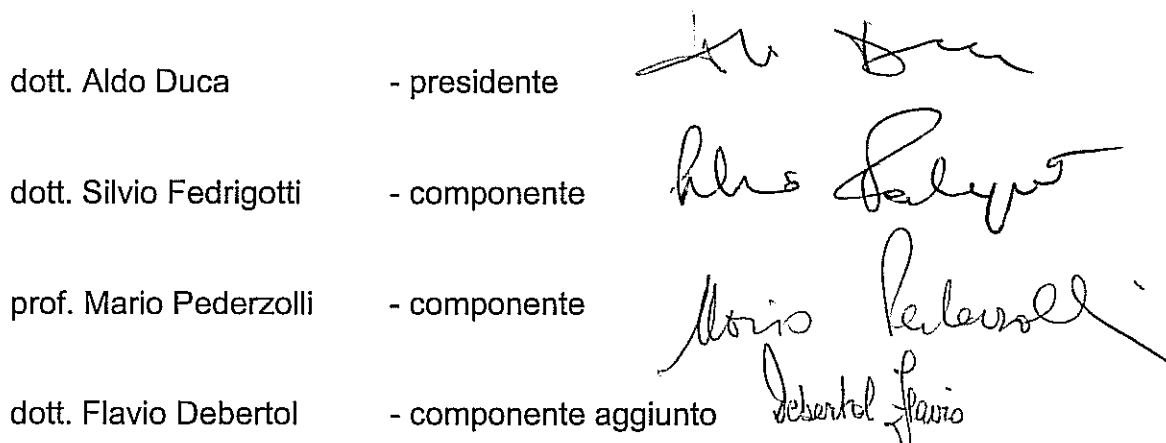 dott. Aldo Duca - presidente
dott. Silvio Fedrigotti - componente
prof. Mario Pederzolli - componente Mario Pederzolli
dott. Flavio Debertol - componente aggiunto Debertol Flavio